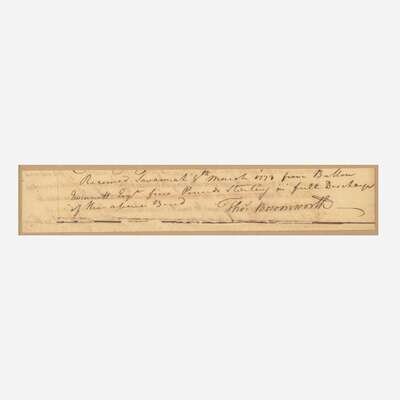 Received Savannah 8th March 1773 from Button
Gwinnett Esqr five Pounds Sterling in full Discharge
of the above Bond
Thos Bosomworth